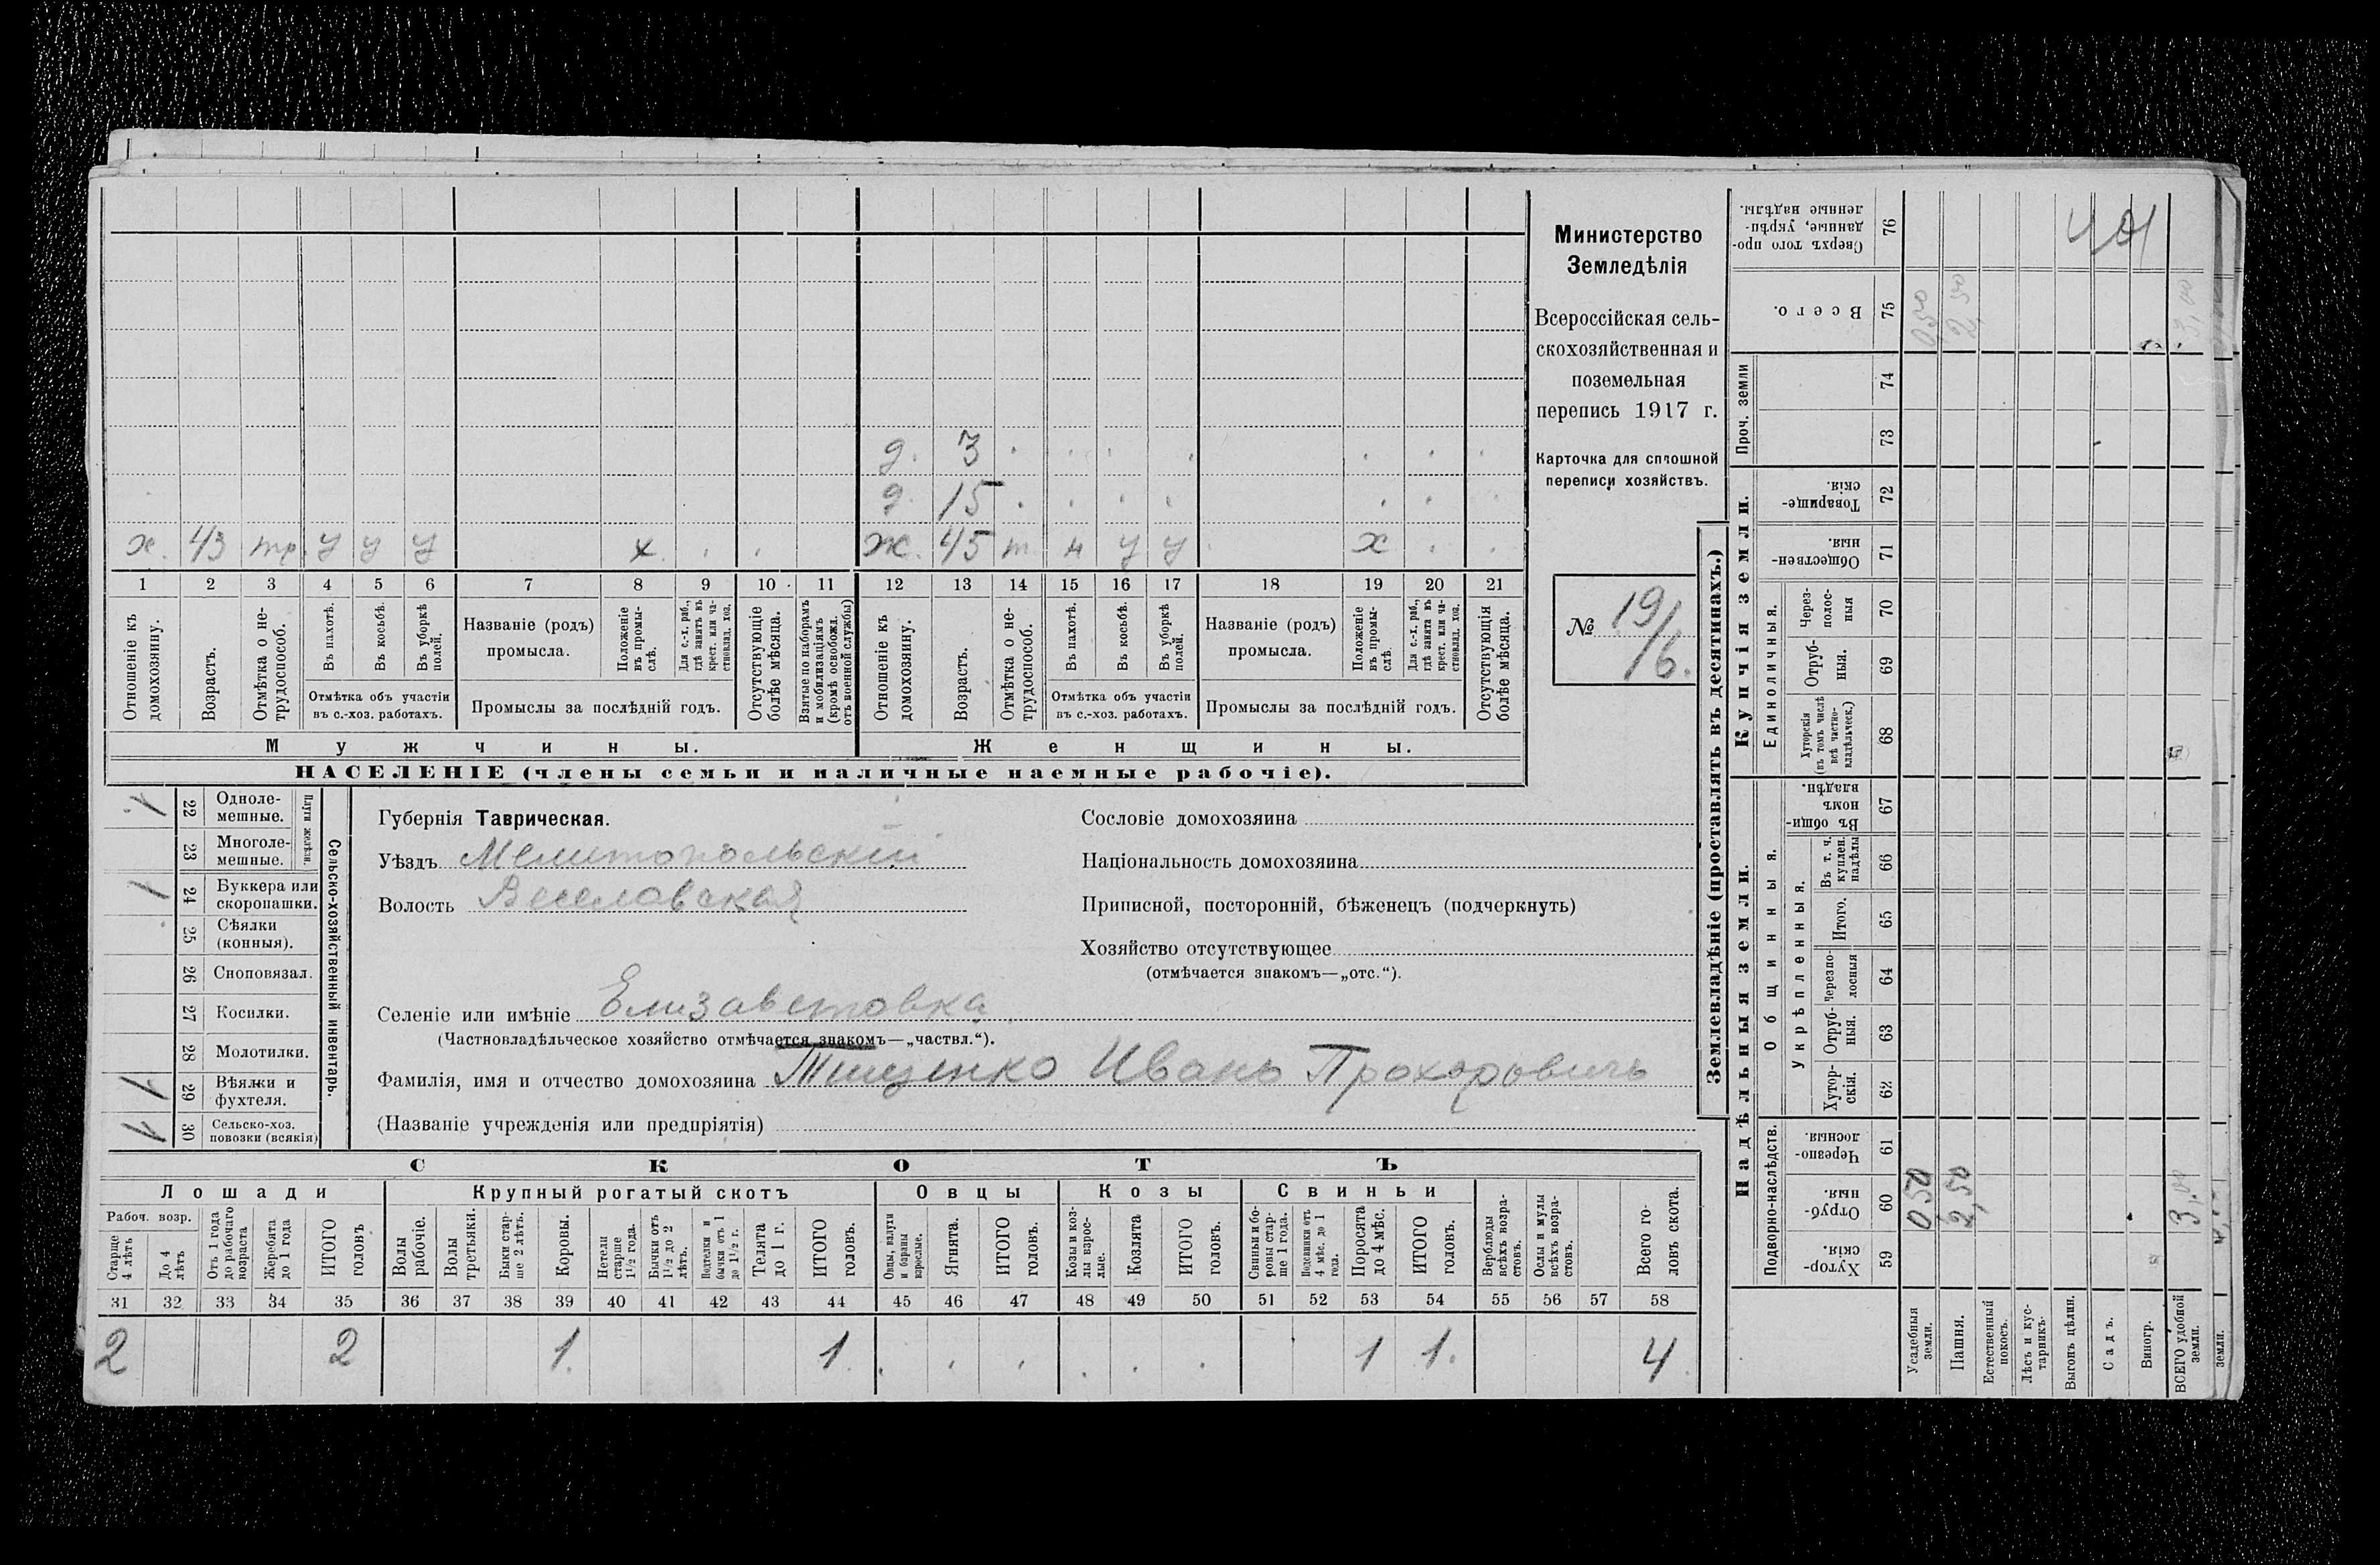 Министерство
Земледѣлія
Всероссійская сель-
скохозяйственная и
поземельная
перепись 1917 г.
Карточка для сплошной
переписи хозяйствъ.
№ 19/16.
д. 3
д. 15
х. 43 тр. у у у х ж. 45 т н у у х
1 2 3 4 5 6 7 8 9 10 11 12 13 14 15 16 17 18 19 20 21
Отношеніе къ домохозяину.
Возрастъ.
Отмѣтка о не-трудоспособ.
Въ пахотѣ.
Въ косьбѣ.
Въ уборкѣ полей.
Отмѣтка объ участіи
въ с.-хоз. работахъ.
Названіе (родъ)
промысла.
Положеніе въ промы-слѣ.
Для с.-х. раб., гдѣ занятъ въ крест. или ча-стновлад. хоз.
Промыслы за послѣдній годъ.
Отсутствующіе болѣе мѣсяца.
Взятые по наборамъ и мобилизаціямъ (кромѣ освобожд. отъ военной службы)
Отношеніе къ домохозяину.
Возрастъ.
Отмѣтка о не-трудоспособ.
Въ пахотѣ.
Въ косьбѣ.
Въ уборкѣ полей.
Отмѣтка объ участіи
въ с.-хоз. работахъ.
Названіе (родъ)
промысла.
Положеніе въ промы-слѣ.
Для с.-х. раб., гдѣ занята въ крест. или ча-стновлад. хоз.
Промыслы за послѣдній годъ.
Отсутствующія болѣе мѣсяца.
Мужчины. Женщины.
НАСЕЛЕНІЕ (члены семьи и наличные наемные рабочіе).
Сельско-хозяйственный инвентарь.
Плуги желѣзн.
1 22 Одноле-мешные.
23 Многоле-мешные.
1 24 Буккера или скоропашки.
25 Сѣялки (конныя).
26 Сноповязал.
27 Косилки.
28 Молотилки.
29 Вѣялки и фухтеля.
30 Сельско-хоз. повозки (всякія)
Губернія Таврическая.
Уѣздъ Мелитопольскій
Волость Веселовская
Сословіе домохозяина
Національность домохозяина
Приписной, посторонній, бѣженецъ (подчеркнуть)
Хозяйство отсутствующее
(отмѣчается знакомъ—„отс.“).
Селеніе или имѣніе Елизаветовка
(Частновладѣльческое хозяйство отмѣчается знакомъ—„частвл.“).
Фамилія, имя и отчество домохозяина Тищенко Иванъ Прохоровичъ
(Названіе учрежденія или предпріятія)
СКОТЪ
Лошади Крупный рогатый скотъ Овцы Козы Свиньи
Рабоч. возр.
Старще 4 лѣтъ
До 4 лѣтъ
Отъ 1 года до рабочаго возраста
Жеребята до 1 года
ИТОГО головъ
Волы рабочіе.
Волы третьяки.
Быки стар-ше 2 лѣтъ.
Коровы.
Нетели старше 1½ года.
Бычки отъ 1½ до 2 лѣтъ.
Подтелки и бычки отъ 1 до 1½ г.
Телята до 1 г.
ИТОГО головъ.
Овцы, валухи и бараны взрослые.
Ягнята.
ИТОГО головъ.
Козы и коз-лы взрос-лые.
Козлята
ИТОГО головъ.
Свиньи и бо-ровы стар-ше 1 года.
Подсвинки отъ 4 мѣс. до 1 года.
Поросята до 4 мѣс.
ИТОГО головъ.
Верблюды всѣхъ возра-стовъ.
Ослы и мулы всѣхъ возра-стовъ.
Всего го-ловъ скота.
31 32 33 34 35 36 37 38 39 40 41 42 43 44 45 46 47 48 49 50 51 52 53 54 55 56 57 58
2 2 1. 1. 1 1. 4
Землевладѣніе (проставлять въ десятинахъ.)
Надѣльныя земли. Купчія земли.
Проч. земли
Подворно-наслѣдств.
Общинныя.
Укрѣпленныя.
Единоличныя.
Сверхъ того про-данные, укрѣп-ленные надѣлы. 76
Всего. 75 0,50 2,50 3,00
74
73
Товарище-скія. 72
Обществен-ныя. 71
Через-полос-ныя 70
Отруб-ныя. 69
Хуторскія (въ томъ числѣ всѣ частно-владѣльческ.) 68
Въ общи-номъ владѣн. 67
Въ т. ч. куплен. надѣлы 66
Итого. 65
Черезпо-лосныя 64
Отруб-ныя. 63
Хутор-скія. 62
Черезпо-лосныя. 61
Отруб-ныя. 60 0,50 2,50 3,00
Хутор-скія. 59
Усадебныя земли.
Пашня.
Естественный покосъ.
Лѣсъ и кус-тарникъ.
Выгонъ цѣлин.
Садъ.
Виногр.
ВСЕГО удобной земли.
земли.